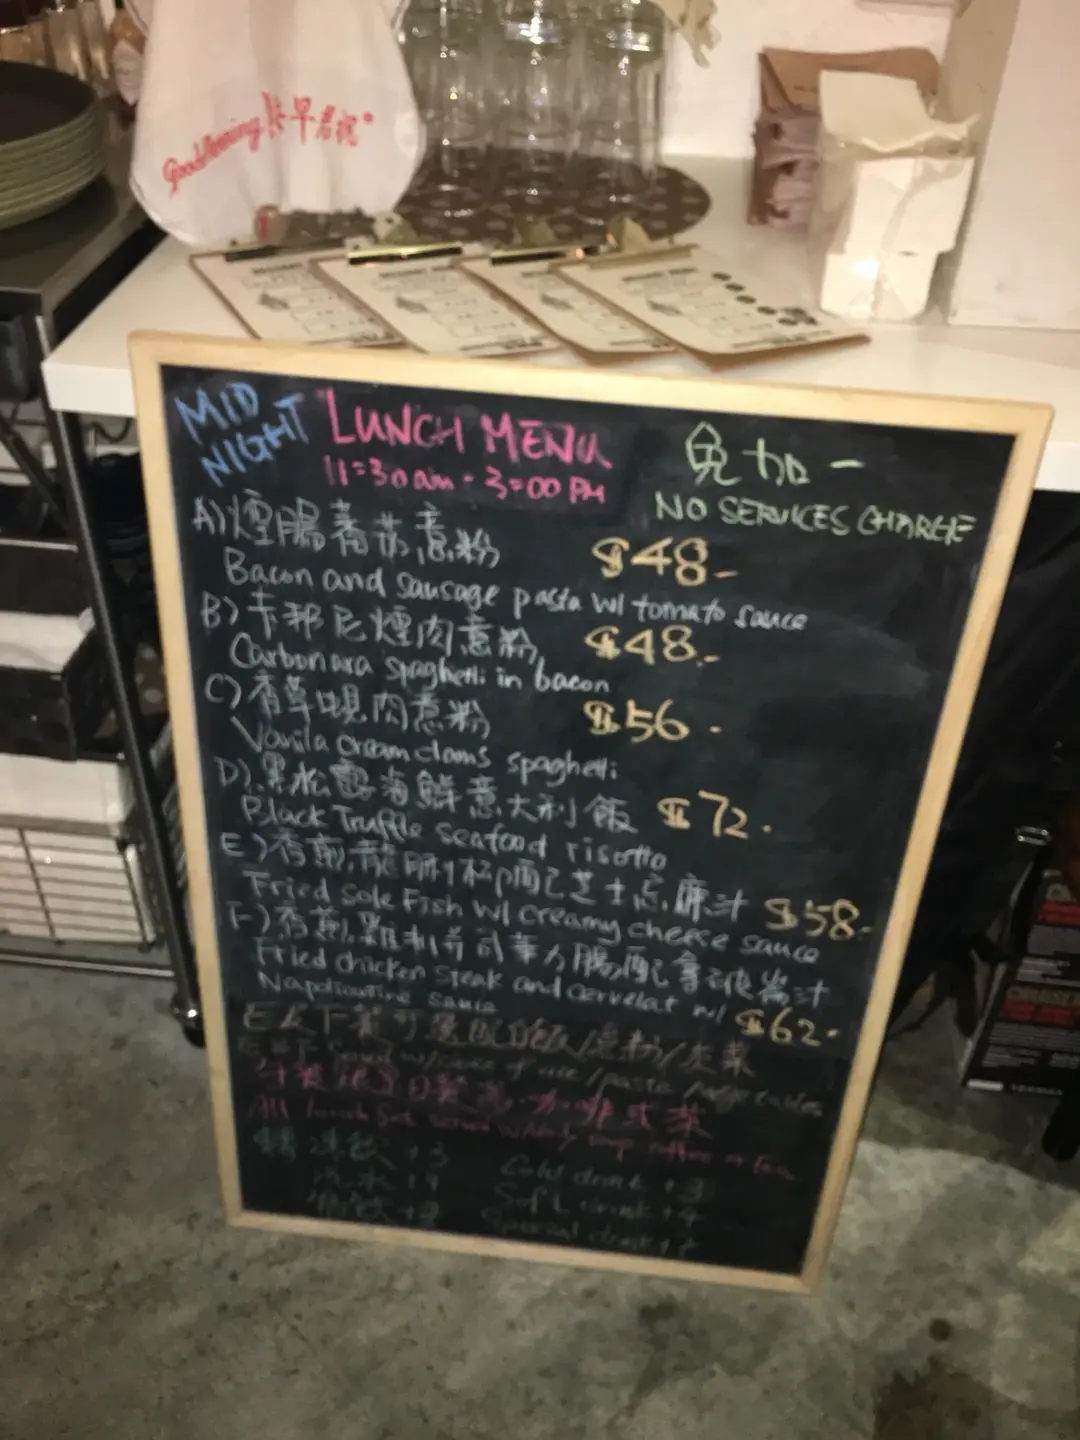 GoodMorning 早君祝®
MID NIGHT
LUNCH MENU
11:30am - 3:00 PM
免加一
NO SERVICES CHARGE
A) 煙腸蕃茄意粉 $48-
Bacon and sausage pasta w/ tomato sauce
B) 卡邦尼煙肉意粉 $48.-
Carbonara spaghetti in bacon
C) 香草蜆肉意粉 $56-
Vanila cream clams spaghetti
D) 黑松露海鮮意大利飯 $72.
Black Truffle seafood risotto
E) 香煎龍脷柳配芝士忌廉汁 $58-
Fried Sole Fish w/ creamy cheese sauce
F) 香煎雞扒并司華力腸配拿破崙汁
Fried chicken steak and Cervelat w/ $62-
sauce
E及F餐可選配飯/意粉/炆菜
E F served w/ rice / pasta / vegetables
咖啡或茶
All lunch set served coffee or tea
凍飲 +3 Cold drink +3
汽水 +4 Soft drink +4
Special drink